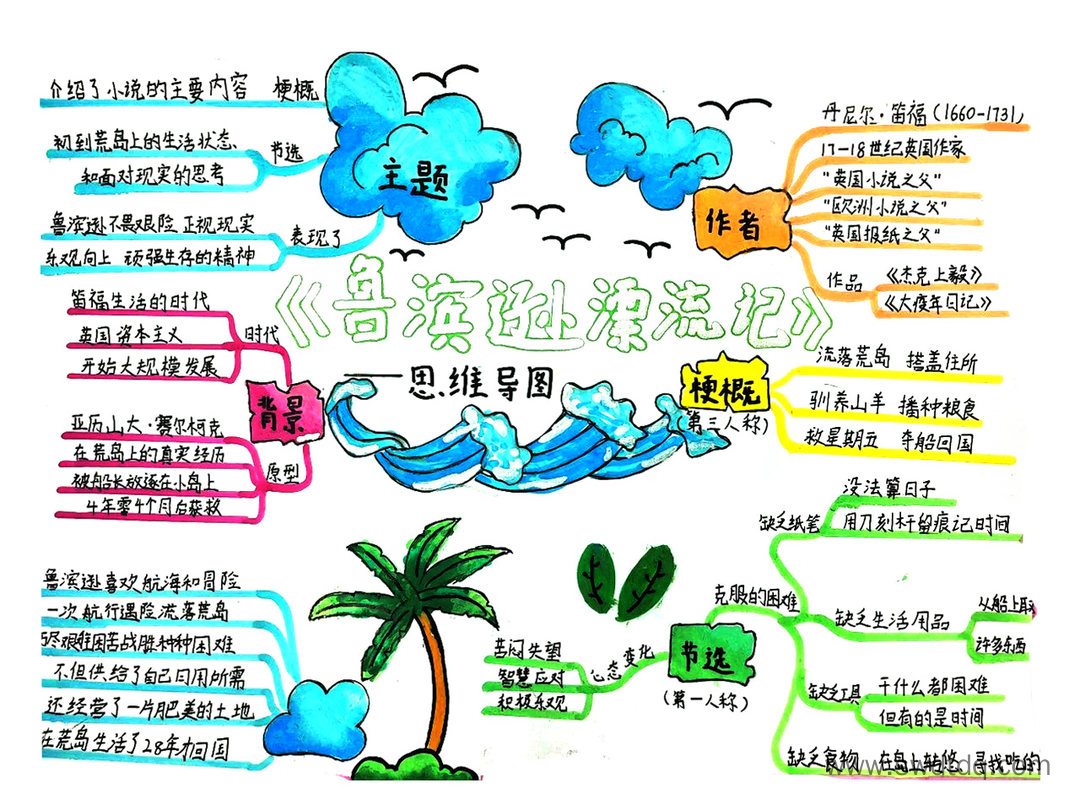 《鲁滨逊漂流记》
——思维导图
主题
介绍了小说的主要内容 梗概
初到荒岛上的生活状态
和面对现实的思考
节选
鲁滨逊不畏艰险 正视现实
乐观向上 顽强生存的精神
表现了
作者
丹尼尔·笛福(1660-1731)
17-18世纪英国作家
"英国小说之父"
"欧洲小说之父"
"英国报纸之父"
作品
《杰克上毅》
《大疫年日记》
背景
笛福生活的时代
英国资本主义
开始大规模发展
时代
亚历山大·赛尔柯克
在荒岛上的真实经历
被船长放逐在小岛上
4年零4个月后获救
原型
梗概
(第三人称)
流落荒岛 搭盖住所
驯养山羊 播种粮食
救星期五 夺船回国
鲁滨逊喜欢航海和冒险
一次航行遇险流落荒岛
尽艰难困苦战胜种种困难
不但供给了自己日用所需
还经营了一片肥美的土地
在荒岛生活了28年才回国
节选
(第一人称)
心态变化
苦闷失望
智慧应对
积极乐观
克服的困难
缺乏纸笔
没法算日子
用刀刻杆留痕记时间
缺乏生活用品
从船上取
许多东西
缺乏工具
干什么都困难
但有的是时间
缺乏食物 在岛上转悠 寻找吃的